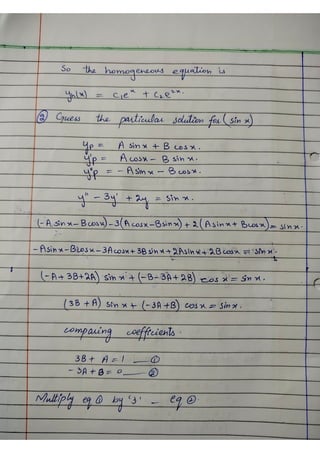 So the homogeneous equation is
yₕ(x) = c₁eˣ + c₂e²ˣ.
② Guess the particular solution for (sin x)
yp = A sin x + B cos x.
y'p = A cos x - B sin x.
y"p = - A sin x - B cos x.
y" - 3y' + 2y = sin x.
(-A sin x - B cos x) - 3(A cos x - B sin x) + 2(A sin x + B cos x) = sin x.
- A sin x - B cos x - 3A cos x + 3B sin x + 2A sin x + 2B cos x = sin x.
(-A + 3B + 2A) sin x + (-B - 3A + 2B) cos x = sin x.
(3B + A) sin x + (-3A + B) cos x = sin x.
comparing coefficients.
3B + A = 1 — ①
- 3A + B = 0 — ②
Multiply eq ① by '3' - eq ②.